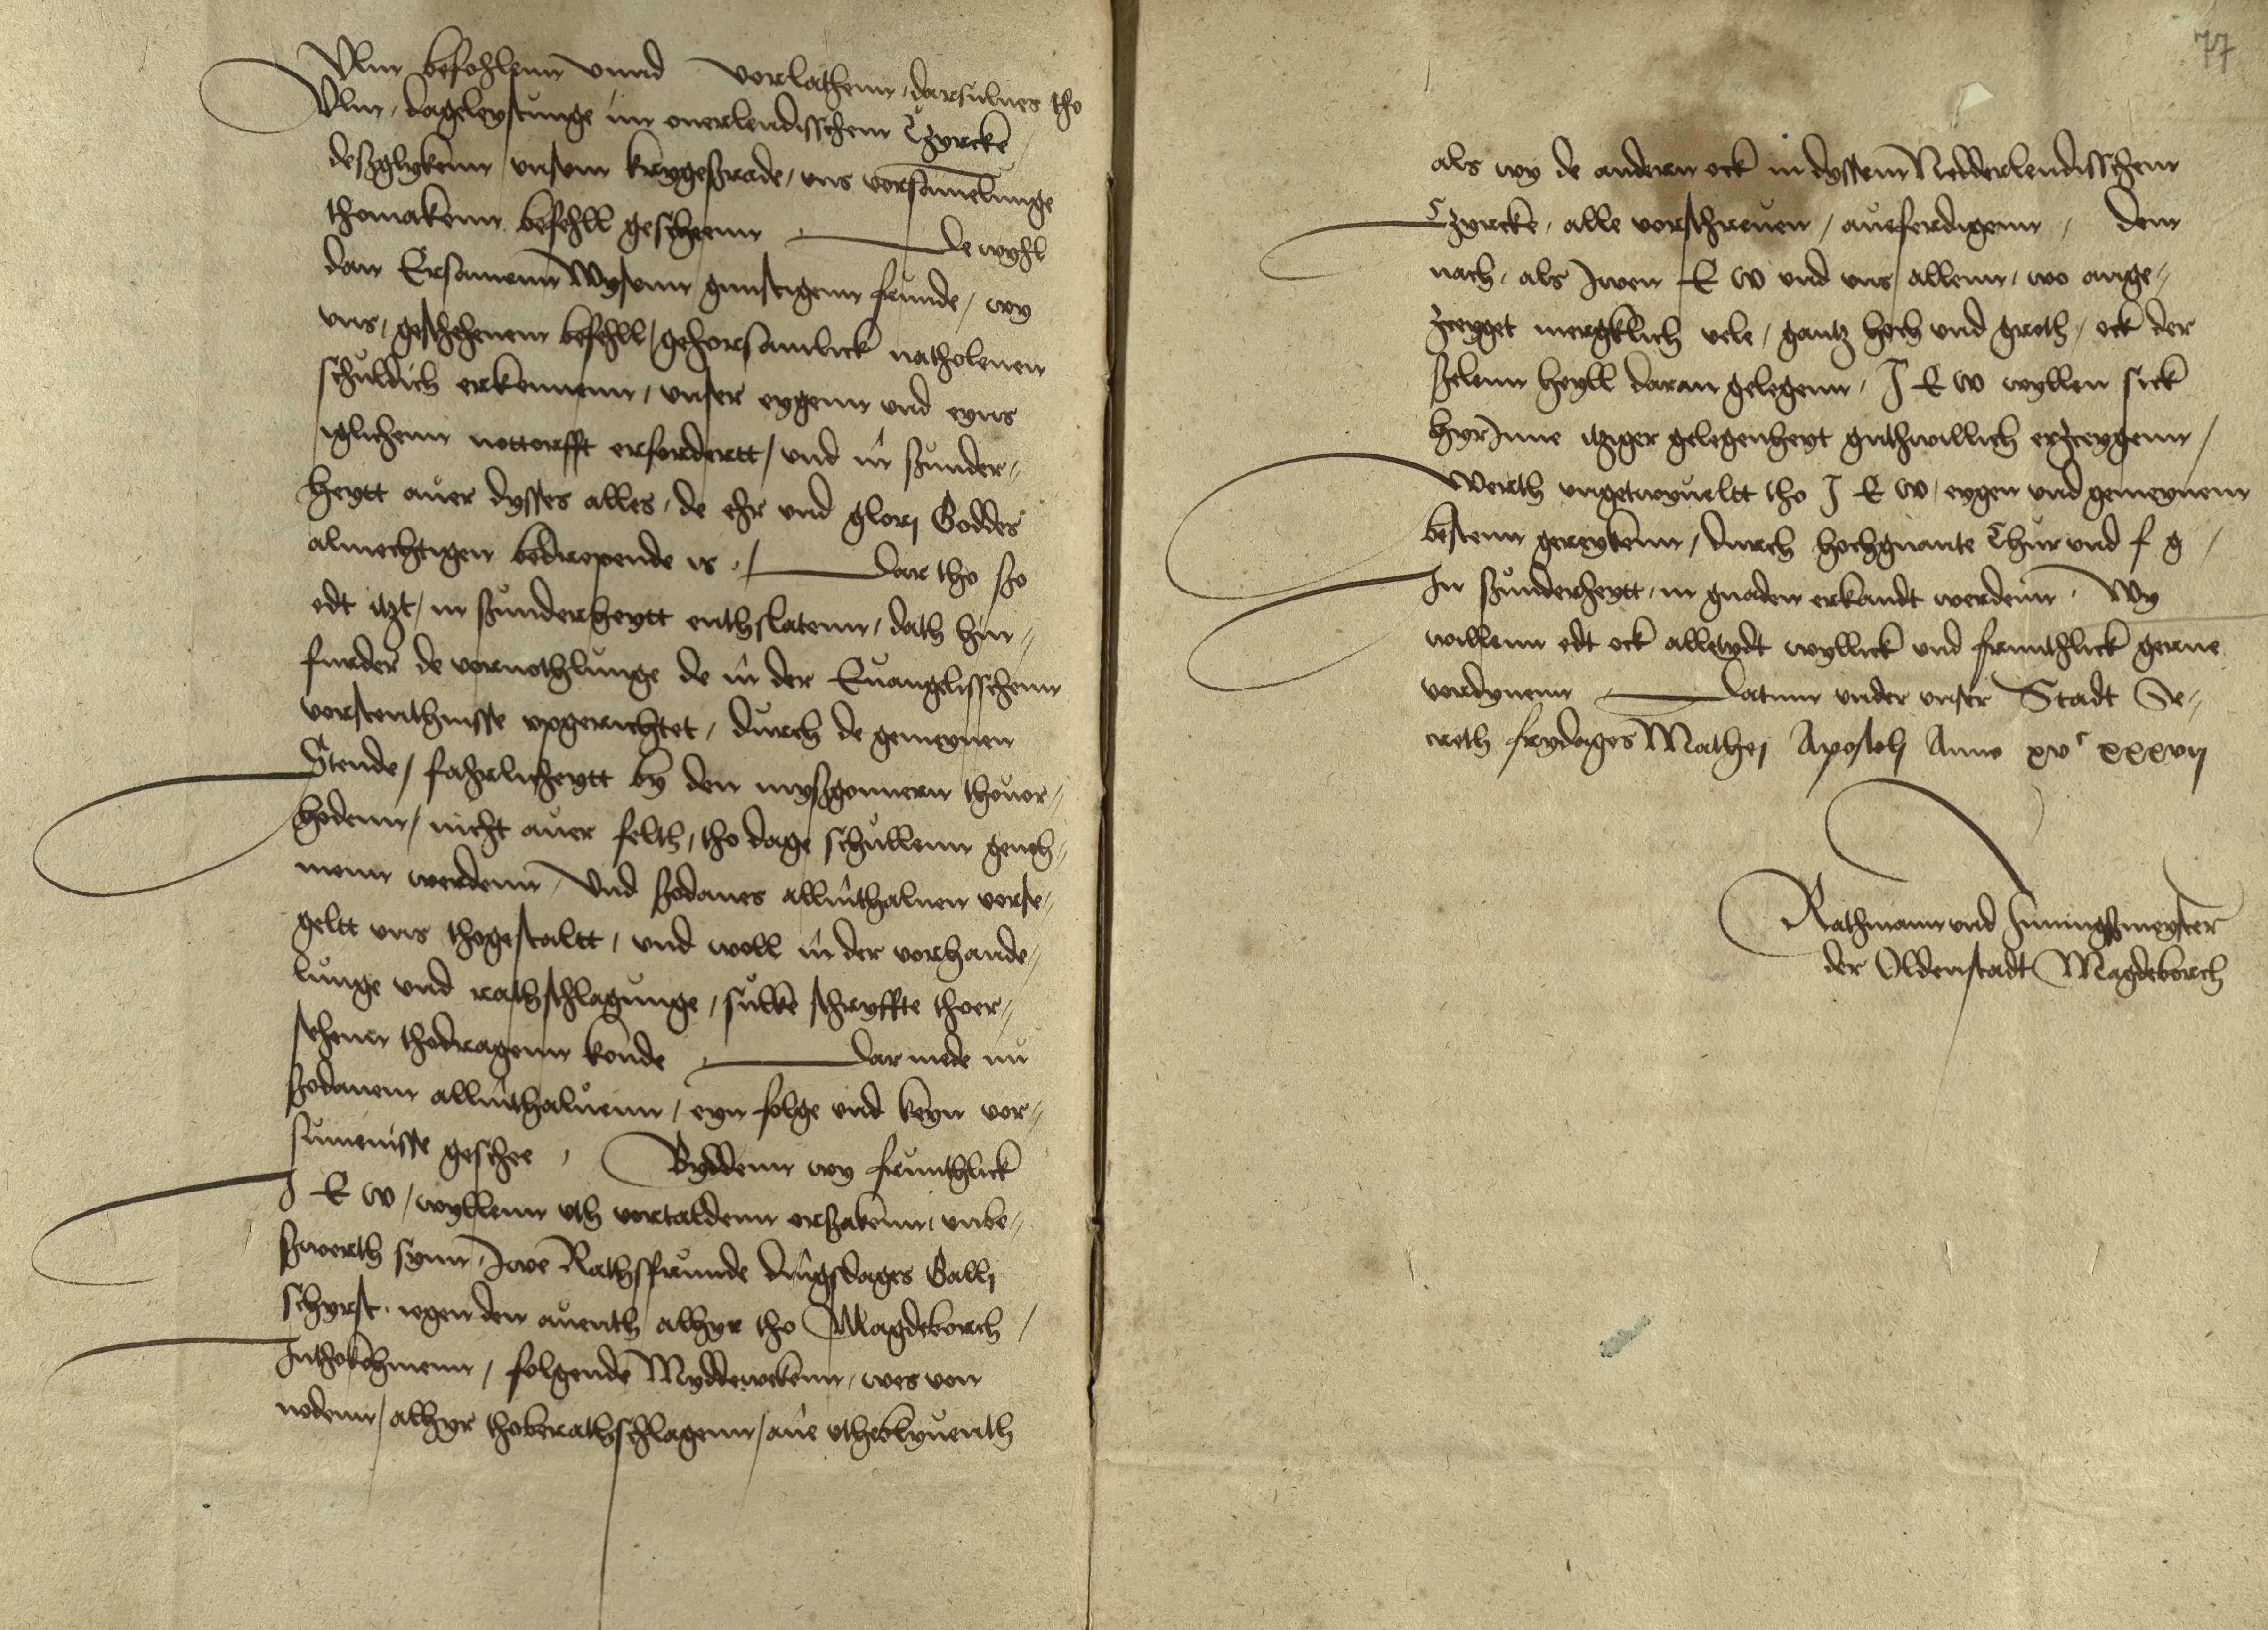 Ulm befohlenn unnd vorlathenn, darsulues tho
Ulm, dageleystunge im ouerlendisschem Czyrcke
deßglykenn unsem krygeßrade, uns vorsamelunge
thomakenn befehll gescheenn de wyhl
dan Ersamenn Wysenn gunstigenn frunde, wy
uns, geschehenem befehll gehorsamlick natholeuen
schuldich erkennenn, unser eygenn und eyns
iglichenn nottorfft erfordertt, und in sunder-
heytt auer dysses alles, de ehr und glorj Goddes
almechtigen bedrepende is, Dar tho ßo
edt itzt, in ßunderheytt enthslatenn, dath hin-
furder de vornothlunge de in der Euangelisschenn
vorstenthnisse upgerichtet, durch de gemeynen
Stende, fahrlicheytt by den myßgonnern thouor-
hodenn, nicht auer felth, tho dage schullenn genoh-
menn werdenn, Und ßodanes allinthaluen vorse-
geltt uns thogestaltt, und woll in der vorhande-
lunge und rathschlagunge, sulke schryffte thoer-
sehenn thodragenn konde Dar mede nu
ßodanem allinthaluenn, eyn folge und keyn vor-
sumenisse geschee, Byddenn wy frunthlick
J E W, wyllenn uth vortaldenn orßakenn, unbe-
ßwerth synn, Jwe Rathsfrunde dingsdages Galli
schyrst, iegen den auenth alhyr tho Magdeborch,
Inthokohmenn, folgende Myddewekenn, wes von
nodenn, alhyr thoberathschlagenn, ane utheblyuenth
77
als wy de andern ock in dyssem Nedderlendisschem
Czyrcke, alle vorschreuen, aueferdigenn, dem
nach, als Jwen E W und uns allenn, wo ange-
zceyget mergklich vele, gantz hoch und groth, ock der
ßelenn heyll daran gelegenn, J E W wyllen sick
hyrInne itziger gelegenheyt guthwillich erzceygenn,
Werth ungetwyueltt tho J E W, eygen und gemeynem
bestenn gereykenn, durch hochgnante Chur und f g,
In ßunderheytt, in gnaden erkandt werdenn, Wy
willenn edt ock alletydt wyllick und frunthlick gerne
vordynenn Datum under unser Stadt Se-
creth frydages Mathej Apostolj Anno xvᶜ xxxvij
Rathmann und Inningßmeyster
der Oldenstadt Magdeborch